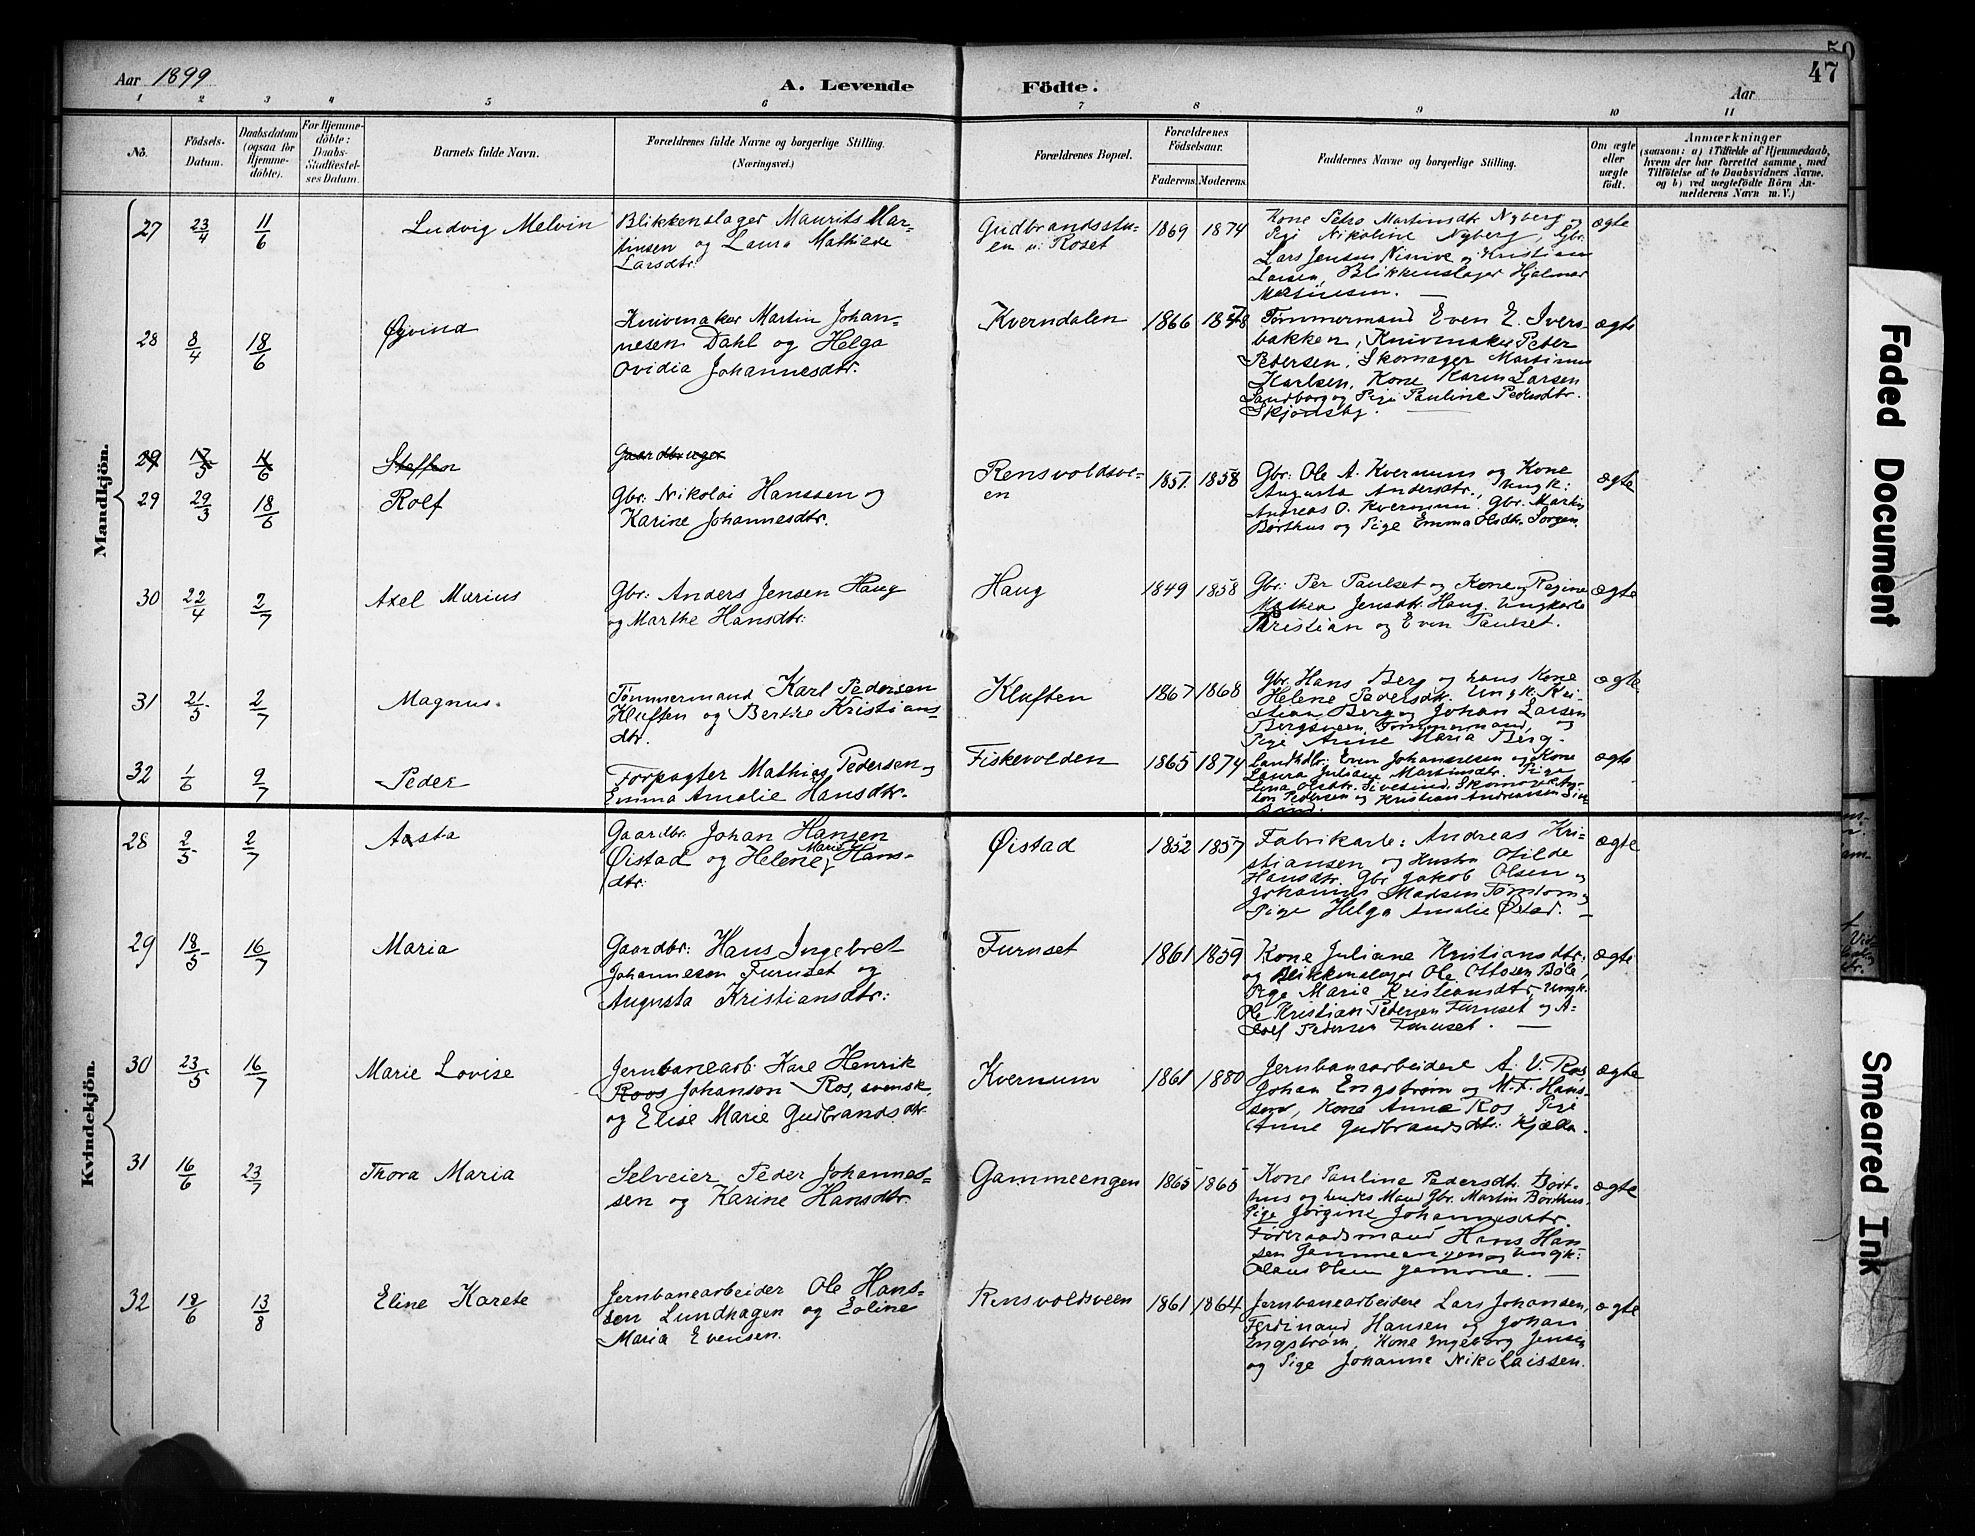 Aar 1899
A. Levende Födte.
Aar
50
47
1 2 3 4 5 6 7 8 9 10 11
No.
Födsels-
Datum.
Daabsdatum
(ogsaa for
Hjemme-
döbte).
For Hjemme-
döbte:
Daabs-
Stadfæstel-
ses Datum.
Barnets fulde Navn.
Forældrenes fulde Navne og borgerlige Stilling.
(Næringsvei.)
Forældrenes Bopæl.
Forældrenes
Födselsaar.
Faderens. Moderens.
Faddernes Navne og borgerlige Stilling.
Om ægte
eller
uægte
födt.
Anmærkninger
(saasom: a) i Tilfælde af Hjemmedaab,
hvem der har forrettet samme, med
Tilföielse af to Daabsvidners Navne,
og b) ved uægtefödte Börn An-
melderens Navn m. V.)
Mandkjön.
27 23/4 11/6 Ludvig Melvin
Blikkenslager Maurits Mar-
tinsen og Laura Mathilde
Larsdtr.
Gudbrandsstu-
en u. Roset
1869 1874
Kone Petra Martinsdtr. Nyberg og
Pige Nikoline Nyberg, Gbr.
Lars Jensen og Kristian
Larsen, Blikkenslager Hjalmar
Martinsen.
ægte
28 8/4 18/6 Øyvind
Knivmaker Martin Johan-
nesen Dahl og Helga
Ovidia Johannesdtr.
Kverndalen
1866 1858
Tømmermand Even E. Ivers-
bakken, Knivmaker Peter
Pedersen, Skomager Martinus
Karlsen, Kone Karen Larsen
Sandborg og Pige Pauline Pedersdtr.
Skjønsby.
ægte
29 17/5 4/6 Steffen
Gaardbruger
29 29/3 18/6 Rolf
Gbr. Nikolai Hanssen og
Karine Johannesdtr.
Rensvoldsve-
en
1857 1858
Gbr: Ole A. Kvernum og Kone
Augusta Andersdtr., Ungk:
Andreas O. Kvernum. Gbr. Martin
Børthus og Pige Emma Olsdtr. Sorgen.
ægte
30 22/4 2/7 Axel Marius
Gbr: Anders Jensen Haug
og Marthe Hansdtr:
Haug
1849 1858
Gbr: Per Paulset og Kone og Regine
Mathea Jensdtr. Haug. Ungkarle
Kristian og Even Paulset.
ægte
31 21/5 2/7 Magnus.
Tømmermand Karl Pedersen
Kluften og Berthe Kristians-
dtr.
Kluften
1867 1868
Gbr. Hans Berg og hans Kone
Helene Pedersdtr. Ungk. Kri-
stian Berg og Johan Larsen
Bergsveen, Tømmermand, og
Pige Anne Maria Berg.
ægte
32 1/6 9/7 Peder
Forpagter Mathias Pedersen og
Emma Amalie Hansdtr.
Fiskevolden
1865 1874
Landhdlr. Even Johannesen og Kone
Laura Juliane Martinsdtr. Pige
Lina Olsdtr. Sivesind. Skomaker An-
ton Pedersen og Kristian Andreassen Sive-
sind.
ægte
Kvindekjön.
28 2/5 2/7 Aasta
Gaardbr. Johan Hansen
Øistad og Helene Marie Hans-
dtr.
Øistad
1852 1857
Fabrikarb: Andreas Kri-
stiansen og Hustru Otilde
Hansdtr. Gbr Jakob Olsen og
Johannes Madsen Tømtom og
Pige Helga Amalie Østad.
ægte
29 18/5 16/7 Maria
Gaardbr: Hans Ingebret
Johannesen Furuset og
Augusta Kristiansdtr:
Furuset
1861 1859
Kone Juliane Kristiansdtr:
og Blikkenslager Ole Ottosen Bøle,
Pige Maria Kristiansdtr, Ungk.
Ole Kristian Pedersen Furuset og A-
dolf Pedersen Furuset.
ægte
30 23/5 16/7 Marie Lovise
Jernbanearb. Karl Henrik
Roos Johanson Ros, svensk,
og Elise Marie Gudbrandsdtr.
Kvernum
1861 1880
Jernbanearbeidere A. V. Ros,
Johan Engstrøm og M. F. Hans-
sen, Kone Anna Ros, Pige
Anne Gudbrandsdtr. Kjæla.
ægte
31 16/6 23/7 Thora Maria
Selveier Peder Johannes-
sen og Karine Hansdtr.
Gammeengen
1865 1865
Kone Pauline Pedersdtr. Børt-
hus og hendes Mand Gbr. Martin Børthus.
Pige Jørgine Johannesdtr.
Føderaadsmand Hans Han-
sen Gammeengen og Ungk:
Claus Olsen Gamme.
ægte
32 18/6 13/8 Eline Karete
Jernbanearbeider Ole Hans-
sen Lundhagen og Eoline
Maria Evensen.
Rensvoldsveen
1861 1864
Jernbanearbeidere Lars Johansen,
Ferdinand Hansen og Johan
Engstrøm, Kone Ingeborg Jensen
og Pige Johanne Nikolaissen.
ægte
Faded Document
Smeared Ink